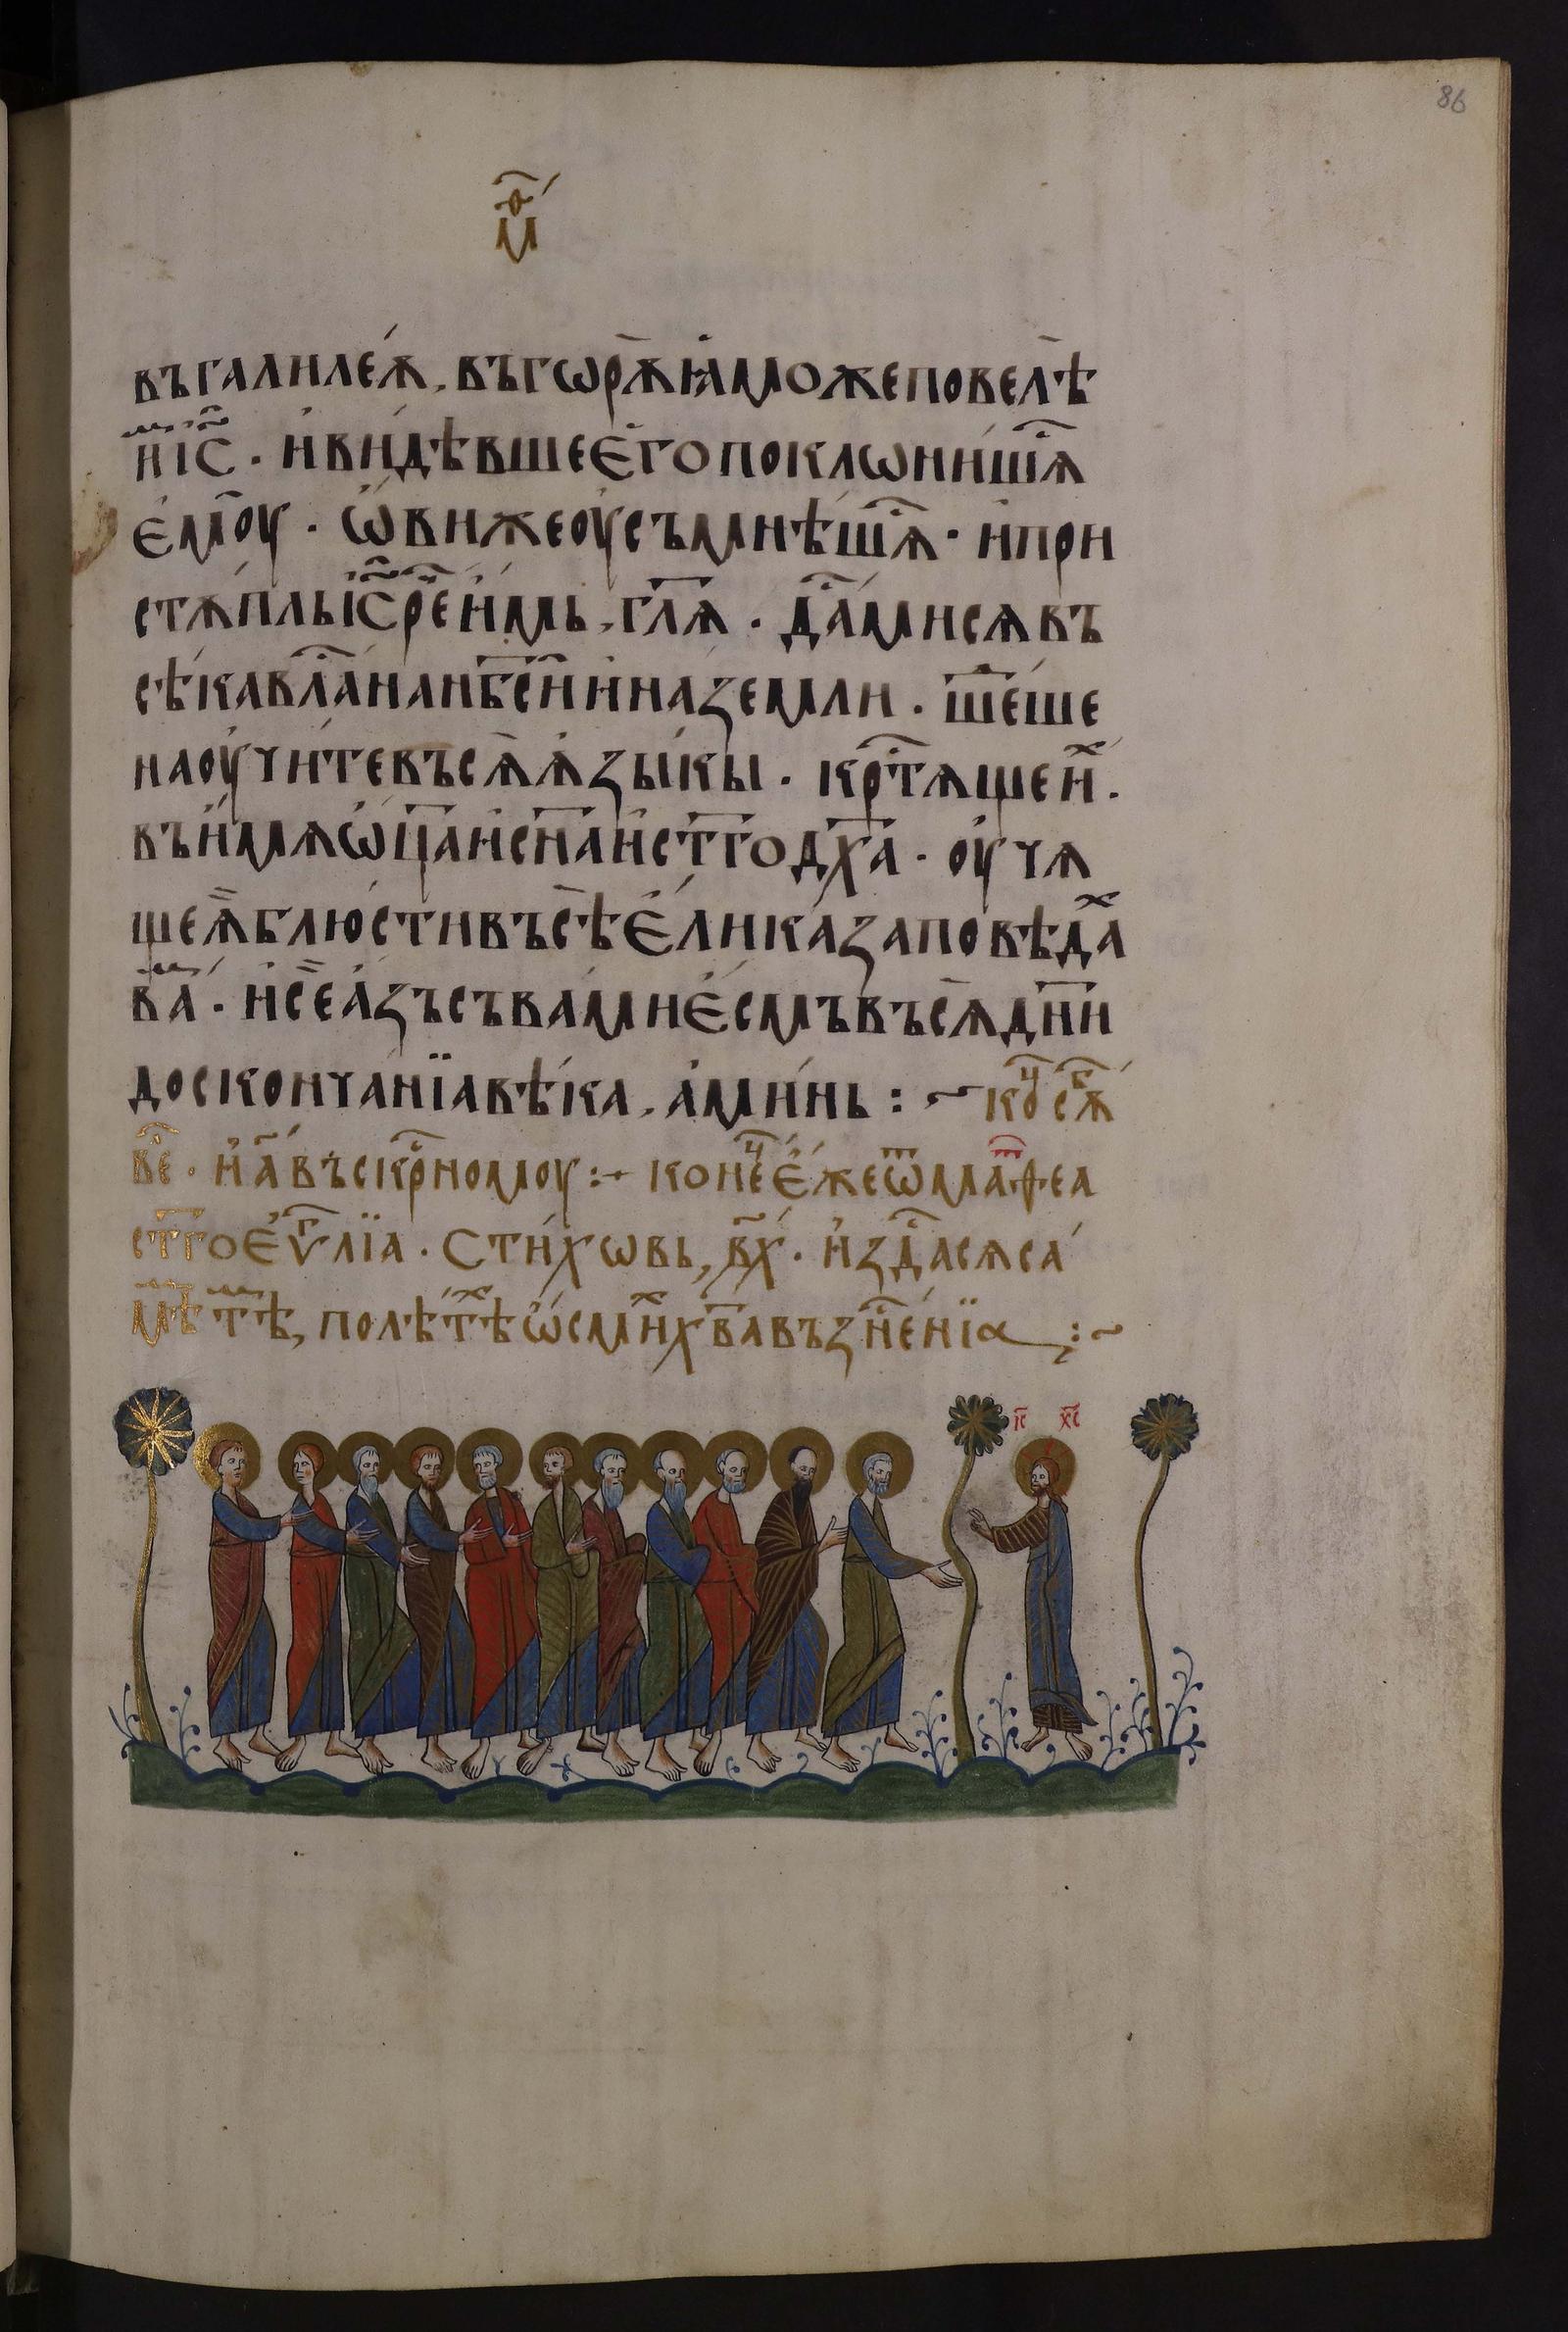 86
м҃ѳ
въгалилеѧ́, въгѡрѫ꙼ꙗ́можеповелѣ
и̇ⷨі҃с · и̇ви́дѣвшееⷢ҇гопоклѡни́шⷭ҇ѧ
е̇моу · ѡ̇вижеоу̇съмнѣ́шⷭ҇ѧ · и̇при
стѫ́пльі҃срⷱ҇еи̇мь, гл҃ѧ · дⷭ҇а́мисѧвъ
сѣ́кавлⷭ҇а́нанб҃сн҃и̇наземли · шеⷣ́ше
наоу̇чи́тевъсѧ̀ѧ̇зы́кы · крⷭ҇тѧщеиⷯ ·
въи́мѧѡ̇ц҃аи̇сн҃аи̇ст҃годх҃а · оу̇чѧ
щеѧ̀блюстивъсѣ̀е̇ли́ка́заповѣдаⷯ
ваⷨ · и̇сѐа́зъсъвамие́смъвъсѧ̀дн҃и
досконча́нїавѣ́ка, а̇ми́нь :~ коⷰ҇сѫⷠ҇
веⷱ҇ · и̇а҃въскрⷭ҇номоу :· конеⷰ҇е́жеѿмаⷮѳеа
ст҃гоеѵⷢ҇лїа · Сти́хѡвь, в҃х · и̇здⷭ҇асѧса
мѣⷨтѣⷨ, полѣтⷯѣѡ̇смиⷯхв҃авъзнⷭ҇е́нїа :~
і҃с х҃с